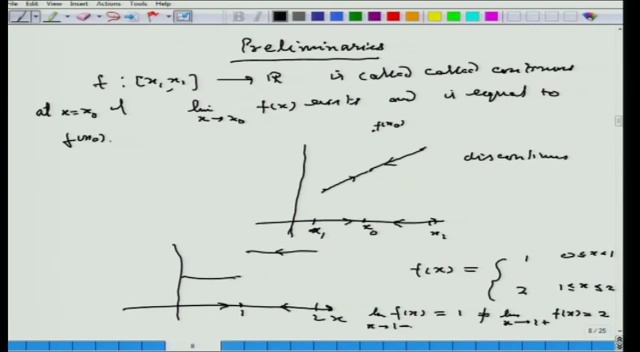 File Edit View Insert Actions Tools Help
Preliminaries
f : [x₁, x₁] → ℝ is called called continuous
at x=x₀ if lim x→x₀ f(x) exists and is equal to
f(x₀).
f(x₀)
discontinuous
x₁ x₀ x₂
f(x) = { 1 0≤x<1
2 1≤x≤2
1 2 x
lim x→1− f(x) = 1 ≠ lim x→1+ f(x) = 2
8 / 25
8